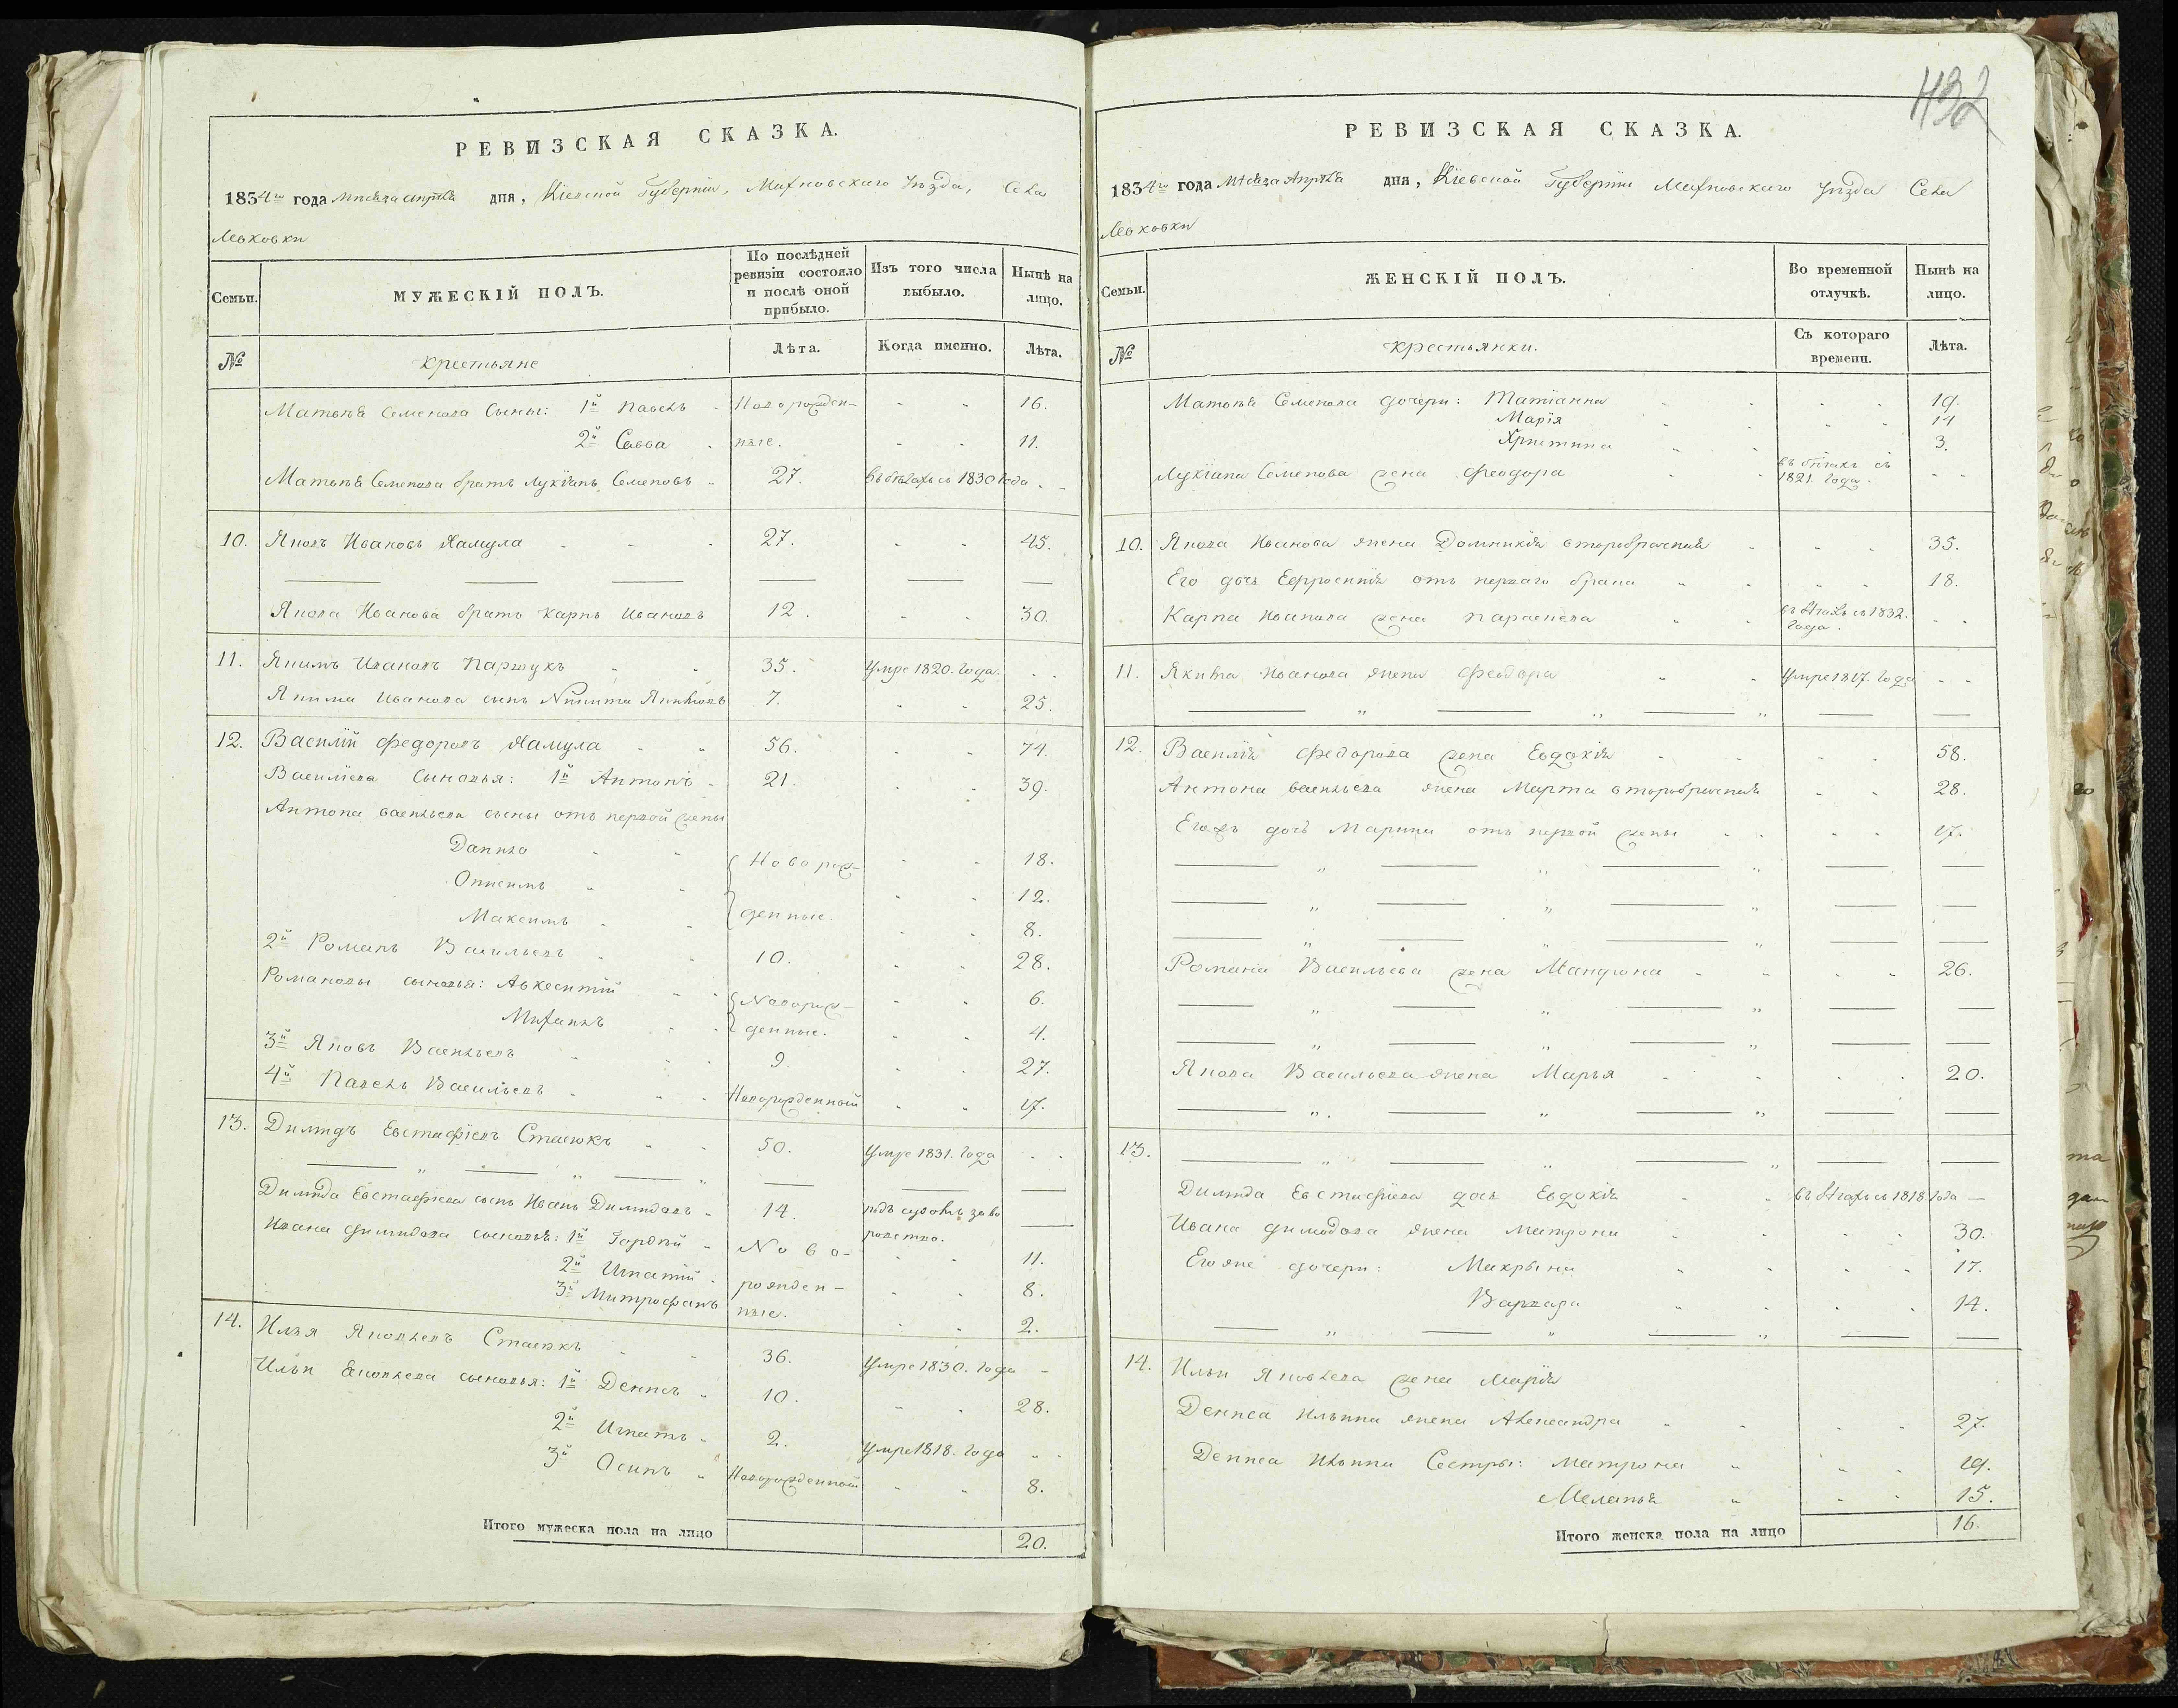 РЕВИЗСКАЯ СКАЗКА.
1834го года Мѣсяца Апрѣля дня, Кіевской Губерніи, Махновскаго Уѣзда, Села
Левковки
Семьи.
МУЖЕСКІЙ ПОЛЪ.
По послѣдней ревизіи состояло и послѣ оной прибыло.
Изъ того числа выбыло.
Нынѣ на лицо.
№
Крестьяне
Лѣта.
Когда именно.
Лѣта.
Матвѣя Семенова Сыны: 1й Павелъ Новорожден- 16.
2й Савва ные. 11.
Матвѣя Семенова братъ Лукіанъ Семеновъ 27. Въ бѣгахъ съ 1830 года
10. Яковъ Ивановъ Хамула 27. 45.
Якова Иванова братъ Карпъ Ивановъ 12. 30.
11. Якимъ Ивановъ Паршукъ 35. Умре 1820. Года.
Якима Иванова сынъ Никита Якимовъ 7. 25.
12. Василій Федоровъ Хамула 56. 74.
Василіева Сыновья: 1й Антонъ 21. 39.
Антона Васильева сыны отъ первой жены
Данило Новорож- 18.
Онисимъ 12.
Максимъ денные. 8.
2й Романъ Васильевъ 10. 28.
Романовы сыновья: Авксентій Новорож- 6.
Михаилъ денные. 4.
3й Яковъ Васильевъ 9. 27.
4й Павелъ Васильевъ Новорожденный 17.
13. Димидъ Евстафіевъ Стасюкъ 50. Умре 1831. Года
Димида Евстафіева сынъ Иванъ Димидовъ 14. подъ судомъ за во
ровство.
Ивана Димидова сыновья: 1й Гордѣй Ново- 11.
2й Игнатій рожден- 8.
3й Митрофанъ ные. 2.
14. Илья Яковлевъ Стасюкъ 36. Умре 1830. года
Ильи Яковлева сыновья: 1й Денисъ 10. 28.
2й Игнатъ 2. Умре 1818. Года
3й Осипъ Новорожденный 8.
Итого мужеска пола на лицо 20.
432
РЕВИЗСКАЯ СКАЗКА.
1834го года Мѣсяца Апрѣля дня, Кіевской Губерніи Махновскаго Уѣзда Села
Левковки
Семьи.
ЖЕНСКІЙ ПОЛЪ.
Во временной отлучкѣ.
Нынѣ на лицо.
№
Крестьянки.
Съ котораго времени.
Лѣта.
Матвѣя Семенова дочери: Татіанна 19.
Марія 14
Христина 3.
Лукіана Семенова жена Феодора въ бѣгахъ съ
1821. Года.
10. Якова Иванова жена Домникія второбрачная 35.
Его дочь Ефросинія отъ перваго брака 18.
Карпа Иванова жена Параскева въ бѣгахъ съ 1832.
Года.
11. Якима Иванова жена Феодора Умре 1817. Года
12. Василія Федорова жена Евдокія 58.
Антона Васильева жена Марта второбрачная 28.
Егожъ дочь Марина отъ первой жены 17.
Романа Васильева жена Мандрона 26.
Якова Васильева жена Марья 20.
13.
Димида Евстафіева дочь Евдокія въ бѣгахъ съ 1818 Года
Ивана Димидова жена Матрона 30.
Его же дочери: Макрына 17.
Варвара 14.
14. Ильи Яковлева жена Марія
Дениса Ильина жена Александра 27.
Дениса Ильина Сестры: Матрона 19.
Меланья 15.
Итого женска пола на лицо 16.